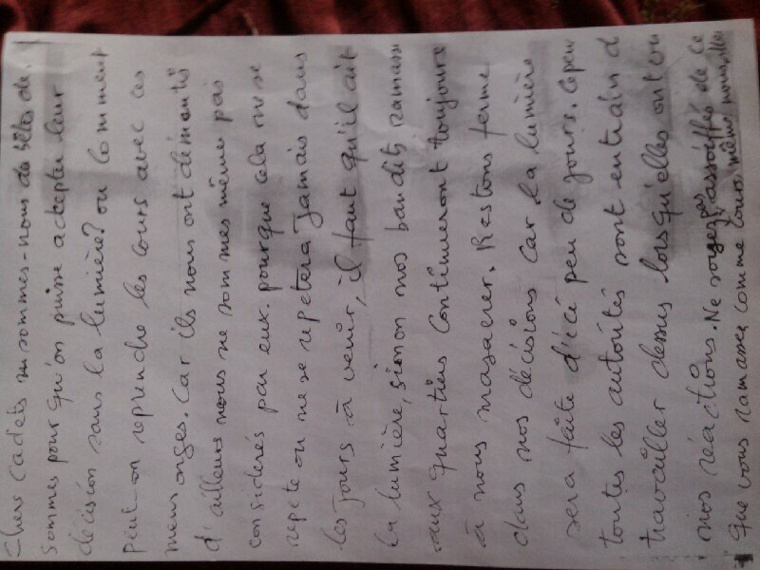 Chers cadets ne sommes-nous de bêtes de
sommes pour qu'on puisse accepter leur
décision sans la lumière? ou comment
peut-on reprendre les cours avec ces
mensonges. Car ils nous ont démentis
d'ailleurs nous ne sommes même pas
considérés par eux. pourque cela ne se
repete ou ne se repetera jamais dans
les jours à venir, il faut qu'il ait
la lumière, sinon nos bandits ramassés
aux quartiers continueront toujours
à nous masacrer. Restons ferme
dans nos décisions car la lumière
sera faite d'ici peu de jours. Cepen
toutes les autorités sont entrain d
travailler dessus lors qu'elles ont vu
nos réactions. Ne soyez pas assoiffés de ce
que vous ramassez comme cours même nous, elles